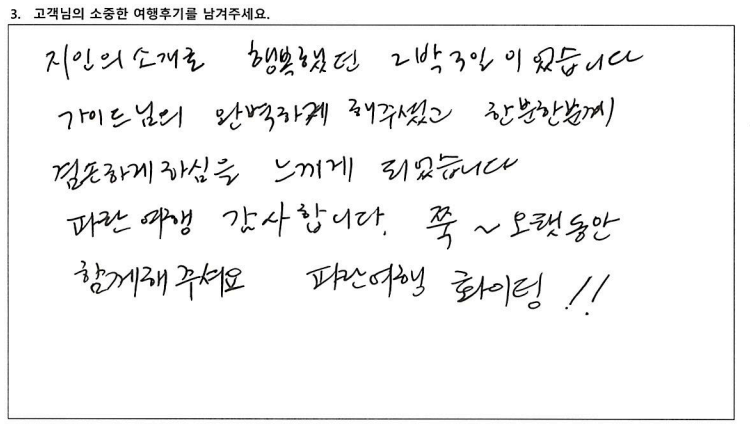 3. 고객님의 소중한 여행후기를 남겨주세요.
지인의 소개로 행복했던 2박3일이었습니다
가이드님의 완벽하게 해주셨고 한분한분께
겸손하게 하심을 느끼게 되었습니다
파란여행 감사합니다. 쭉 ~ 오랫동안
함께해주셔요 파란여행 화이팅!!